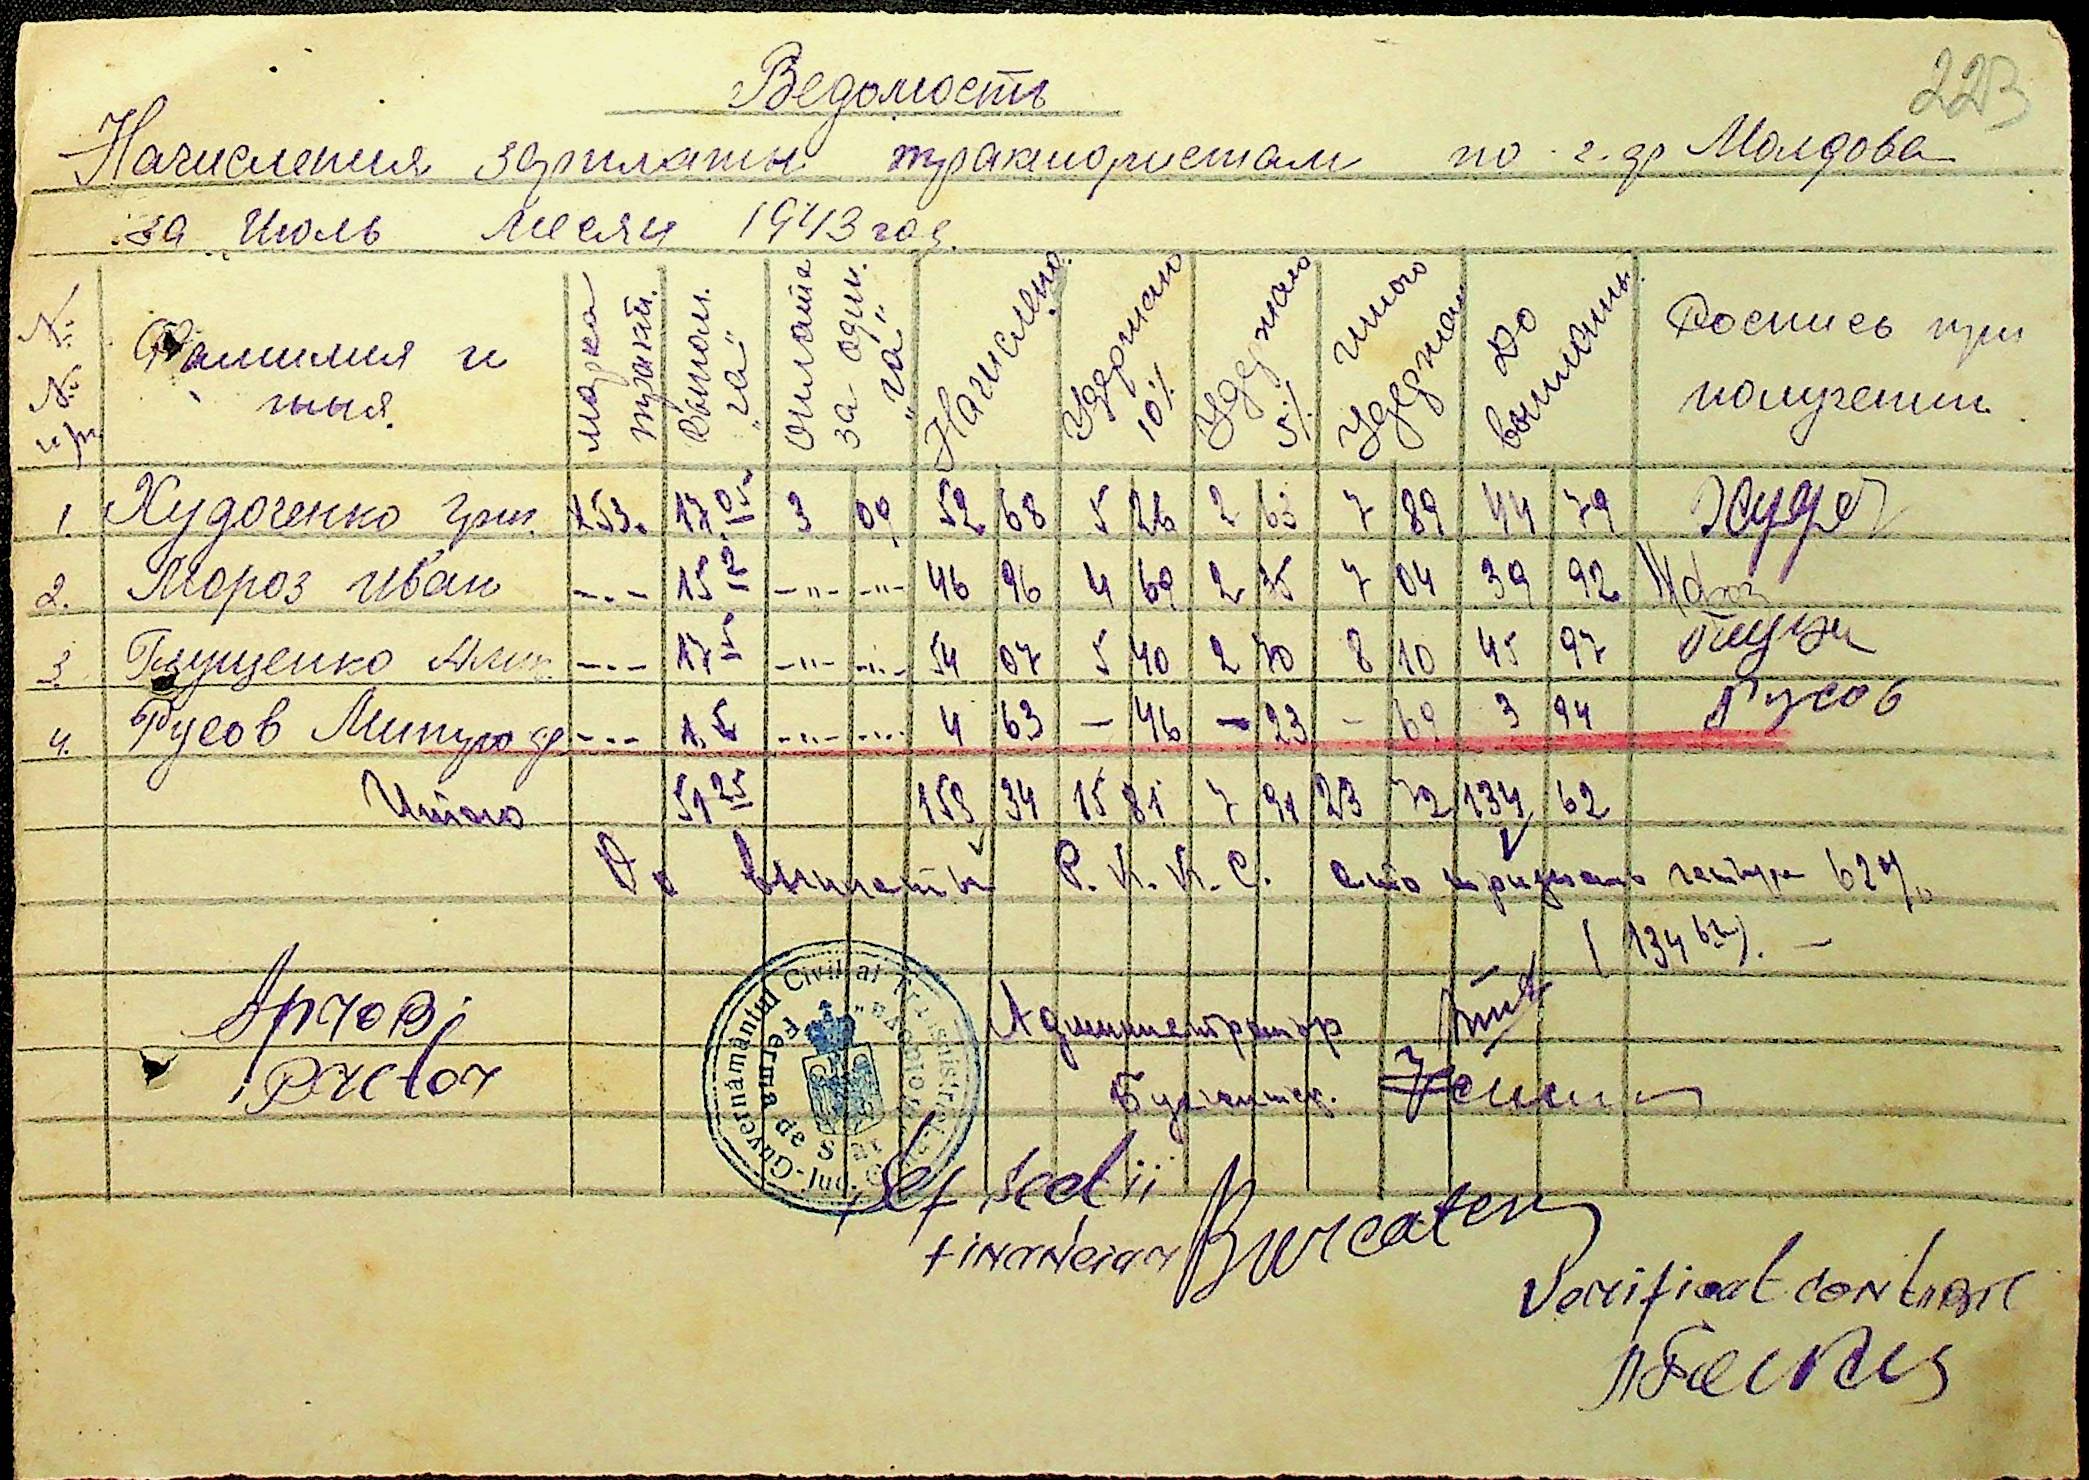 223
Ведомость
Начисления зарплаты трактористам по г. др Молдова
за Июль месяц 1943 год.
№ № пр. Фамилия и имя. марка тракт. Выполн. "га" Оплата за один. "га" Начислено. Удержано 10% Удержано 5% Итого удержан До выплаты. Роспись при получении.
1. Худоченко Гри. 153. 17 05 3 09 52 68 5 26 2 63 7 89 44 79 Худоч
2. Мороз Иван -.- 15 2 -"- -"- 46 96 4 69 2 35 7 04 39 92 Мороз
3. Глущенко Алек. -.- 17 5 -"- -"- 54 07 5 40 2 70 8 10 45 97 Глущен
4. Русов -.- 1.5 -"- -"- 4 63 - 46 - 23 - 69 3 94 Русов
Итого 51 25 153 34 15 81 7 91 23 72 134 62
До выплаты Р.К.К.С. сто тридцать четыре 62%
(134 62). -
Администратор
Бухгалтер.
Guvernământul Civil al Transnistriei
Ferma de Stat
Șef secții
financiar Burcaten
Verificat contabil